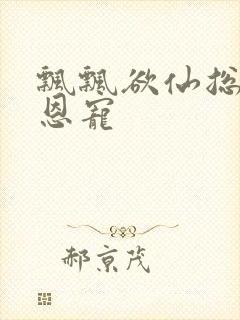 飘飘欲仙总
恩宠
郝京茂